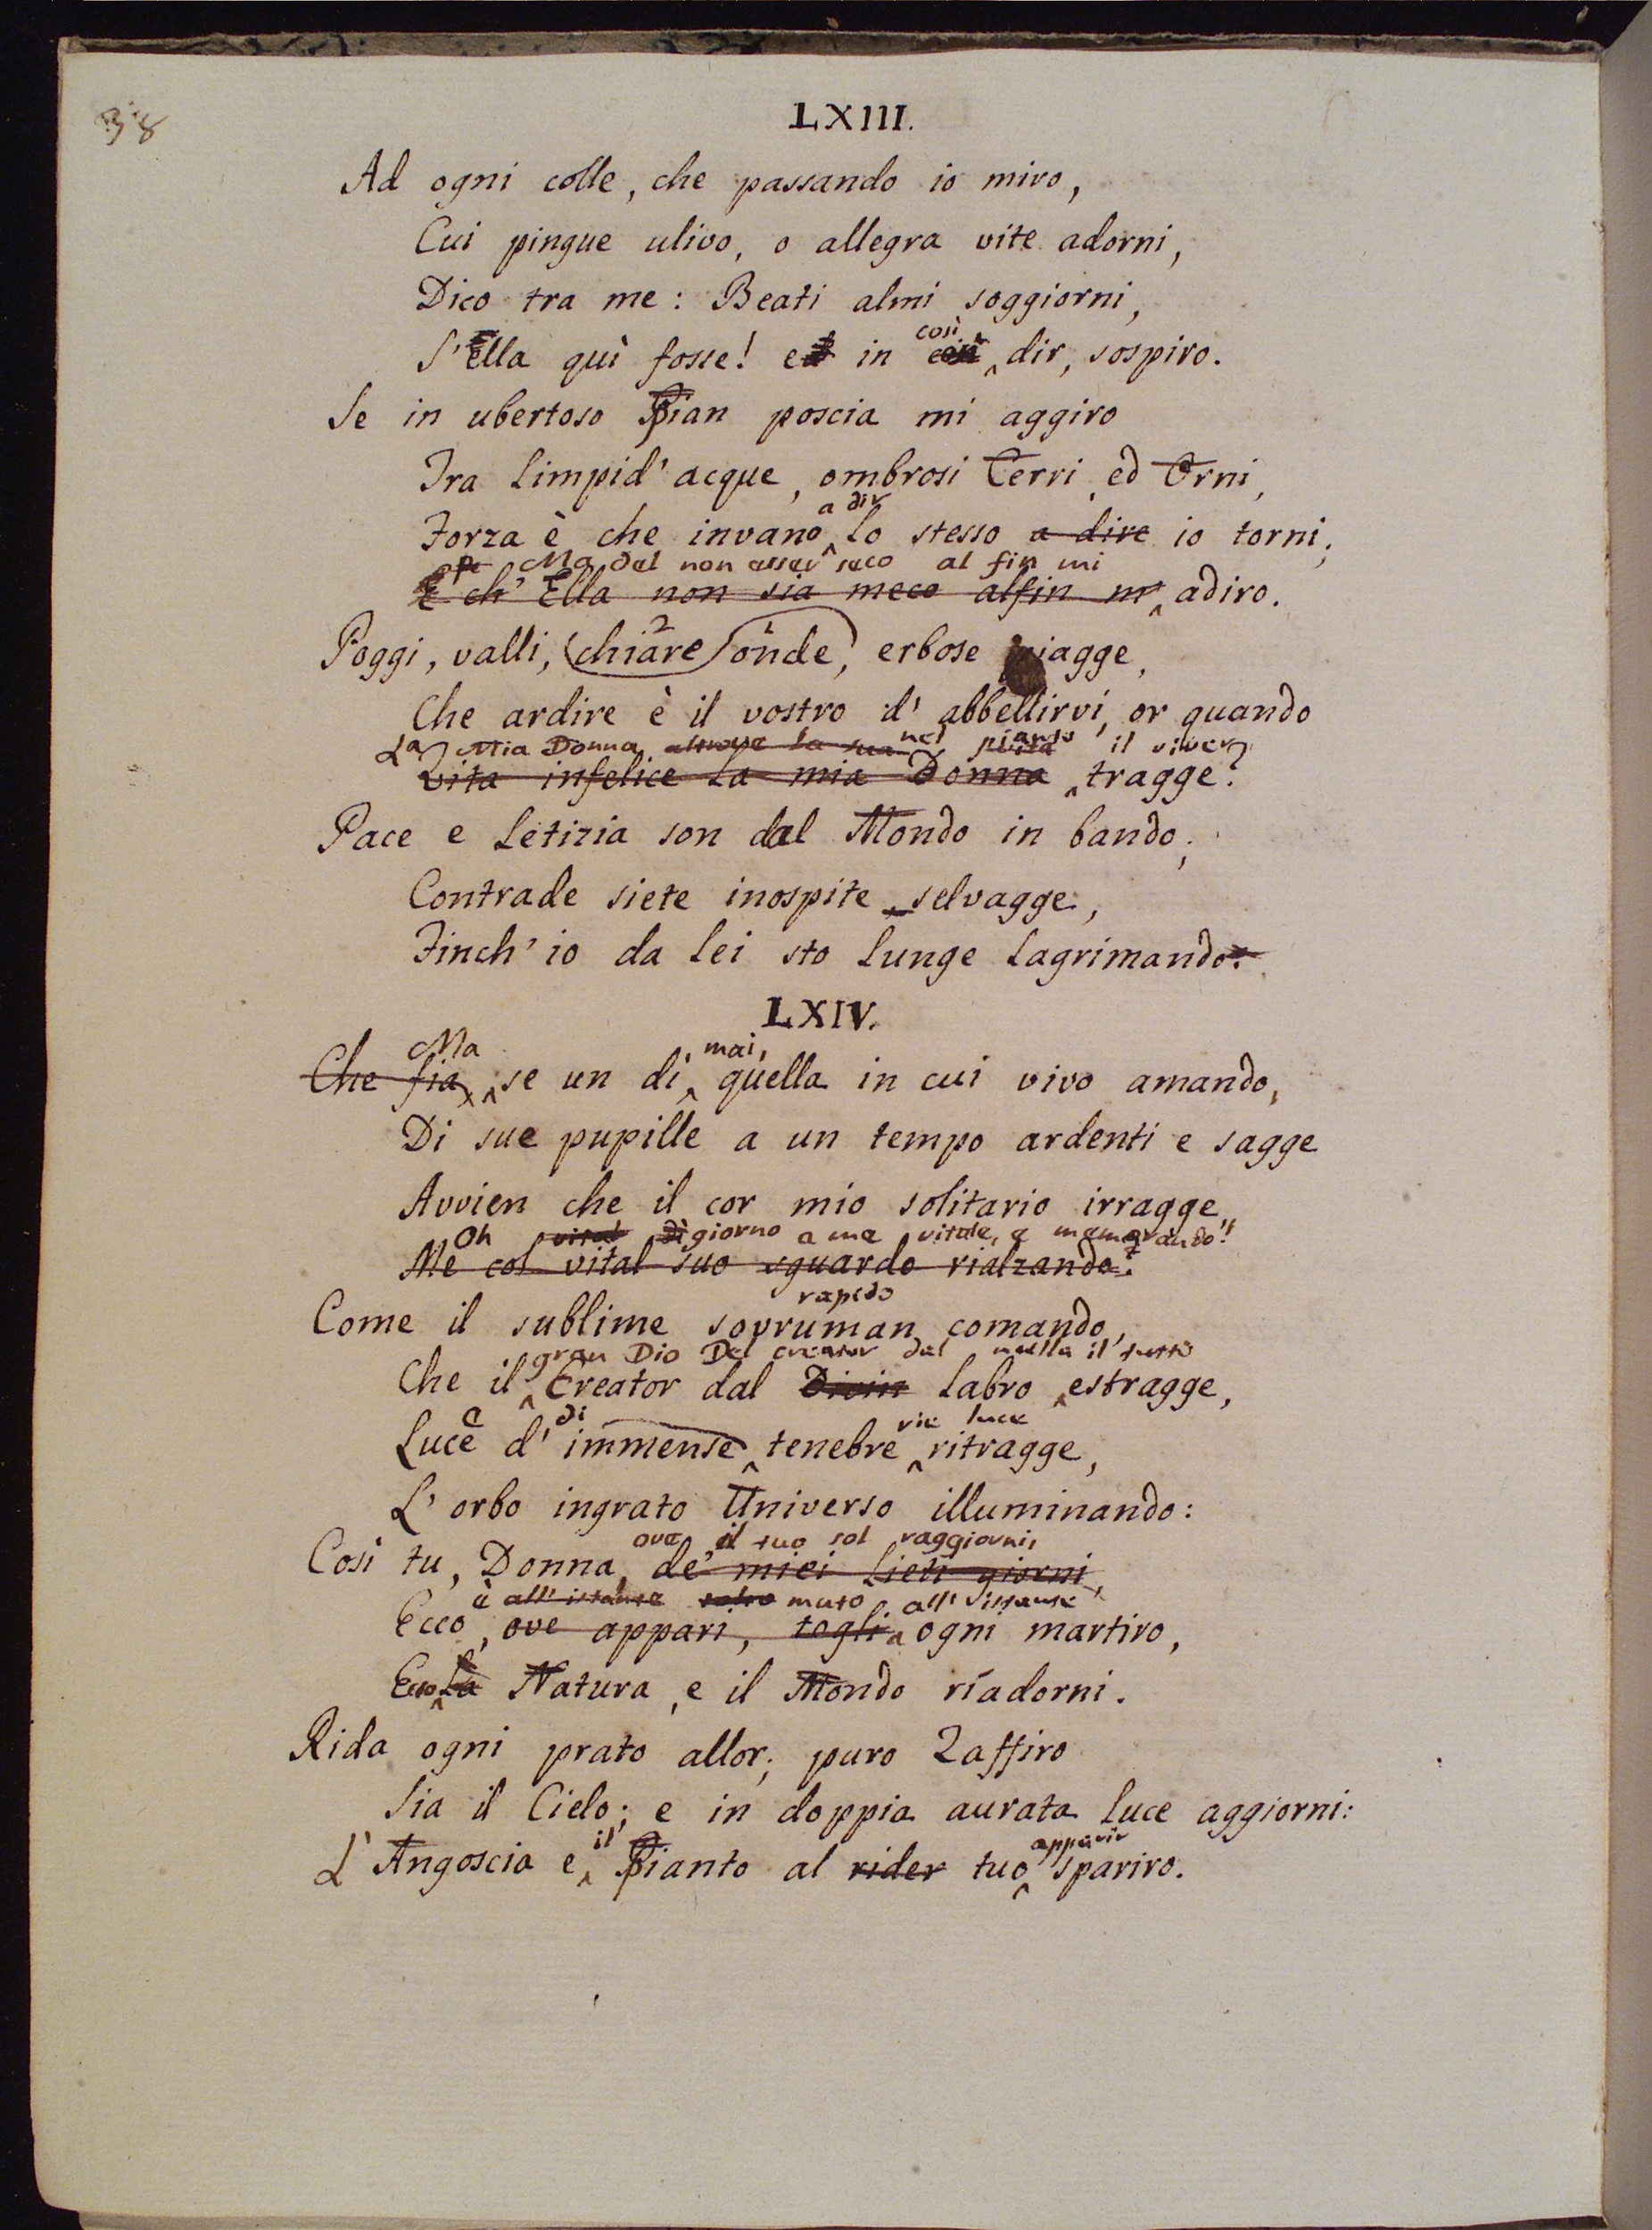 38
LXIII.
Ad ogni colle, che passando io miro,
Cui pingue ulivo, o allegra vite adorni,
Dico tra me: Beati almi soggiorni,
così
S'Ella quì fosse! e in dir, sospiro.
Se in ubertoso Pian poscia mi aggiro
Tra limpid' acque, ombrosi Cerri, ed Orni,
a dir
Forza è che invano lo stesso a dire io torni;
Ma del non esser seco al fin mi
E ch' Ella non sia meco alfin m' adiro.
2 1
Poggi, valli, chiare onde, erbose piagge,
Che ardire è il vostro d' abbellirvi, or quando
La Mia Donna altrove la sua nel pianto il viver
Vita infelice la mia Donna tragge?
Pace e Letizia son dal Mondo in bando;
Contrade siete inospite selvagge,
Finch' io da lei sto lunge lagrimando.
LXIV.
Ma mai,
Che fia, se un dì, quella in cui vivo amando,
Di sue pupille a un tempo ardenti e sagge
Avvien che il cor mio solitario irragge,
Oh vital dì giorno a me vitale, e memorando!
Me col vital suo sguardo rialzando?
rapido
Come il sublime sovruman comando,
gran Dio Del creator dal nulla il tutto
Che il Creator dal Divin labro estragge,
di vie luce
Luce d' immense tenebre ritragge,
L' orbo ingrato Universo illuminando:
ove il tuo sol raggiorni,
Così tu, Donna, de' miei lieti giorni,
è all' istante muto all' istante
Ecco, ove appari, togli ogni martiro,
Ecco la Natura, e il Mondo riadorni.
Rida ogni prato allor; puro Zaffiro
Sia il Cielo; e in doppia aurata luce aggiorni:
il apparir
L'Angoscia e Pianto al rider tuo spariro.